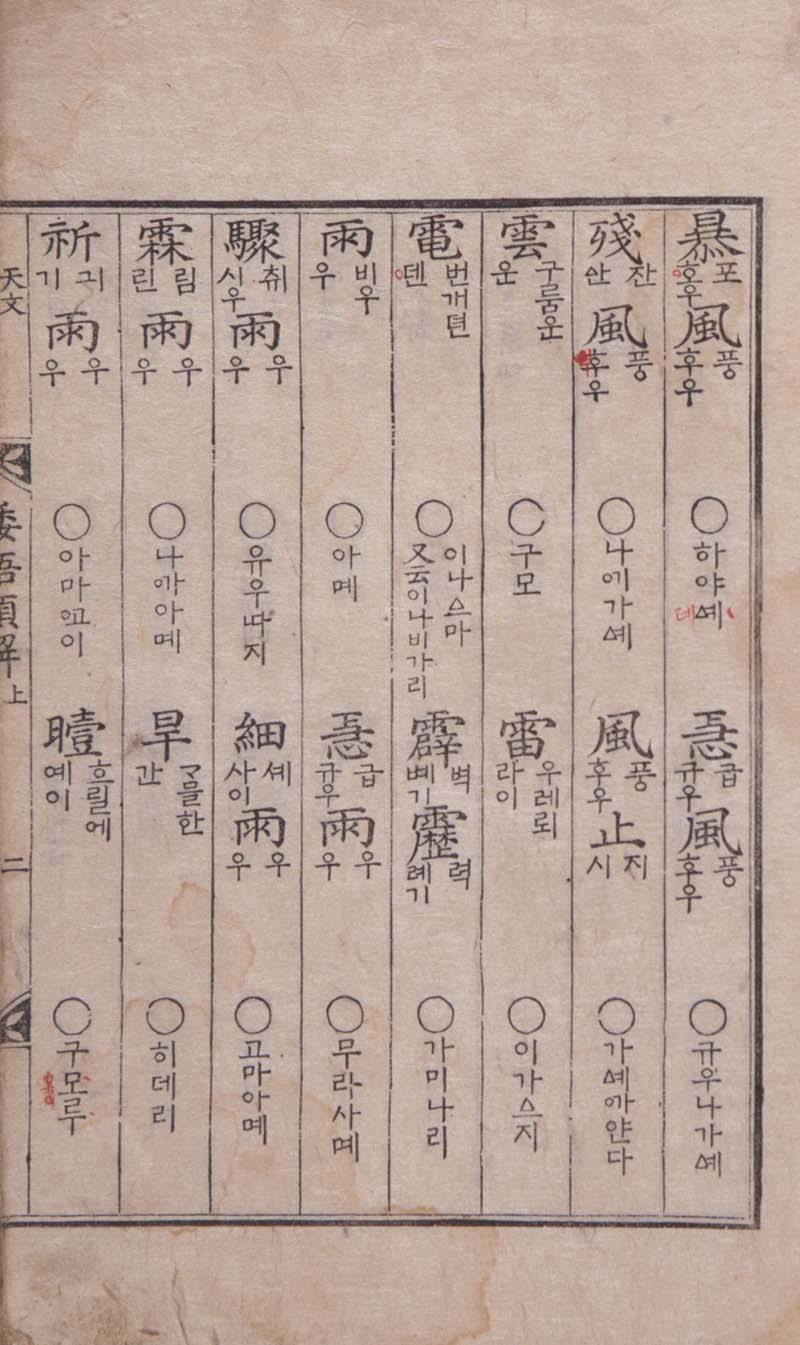 暴 포 호우 風 풍 후우 ○ 하야ᅀᅨ 데 急 급 규우 風 풍 후우 ○ 규우나가ᅀᅨ
殘 잔 산 風 풍 후우 ○ 나ᅁᅦ가ᅀᅨ 風 풍 후우 止 지 시 ○ 가ᅀᅨᅁᅡ얀다
雲 구룸운 운 ○ 구모 雷 우레뢰 라이 ○ 이가ᅀᅳ지
電 번개뎐 덴 ○ 이나ᅀᅳ마 又云이나비가리 霹 벽 볘기 靂 력 례기 ○ 가미나리
雨 비우 우 ○ 아몌 急 급 규우 雨 우 우 ○ 무라사몌
驟 취 시우 雨 우 우 ○ 유우따지 細 셰 사이 雨 우 우 ○ 고마아몌
霖 림 린 雨 우 우 ○ 나ᅁᅡ아몌 旱 ᄀᆞ믈한 간 ○ 히데리
祈 긔 기 雨 우 우 ○ 아마ᅁᅩ이 曀 흐릴에 예이 ○ 구모루
天文 倭語類解上 二